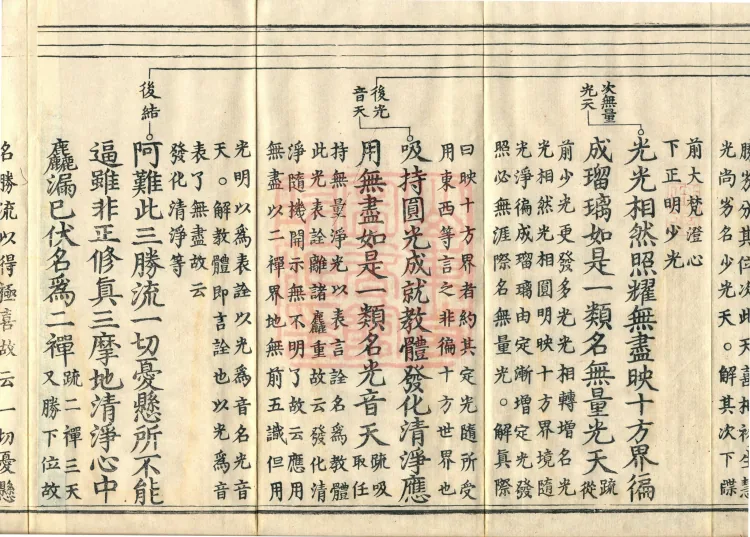 光尚劣名少光天。解其次下牒
前大梵澄心
下正明少光
次無量
光天
光光相然照耀無盡映十方界徧
成瑠璃如是一類名無量光天
疏
從
前少光更發多光光相轉增名光
光相然光相圓明映十方界境隨
光淨徧成瑠璃由定漸增定光發
照必無涯際名無量光。解真際
曰映十方界者約其定光隨所受
用東西等言之非徧十方世界也
後光
音天
吸持圓光成就教體發化清淨應
用無盡如是一類名光音天
疏吸
取任
持無量淨光以表言詮名為教體
此光表詮離諸麤重故云發化清
淨隨機開示無不明了故云應用
無盡以二禪界地無前五識但用
光明以為表詮以光為音名光音
天。解教體即言詮也以光為音
表了無盡故云
發化清淨等
後結
阿難此三勝流一切憂懸所不能
逼雖非正修真三摩地清淨心中
麤漏已伏名為二禪
疏二禪三天
又勝下位故
名勝流以得極喜故云一切憂懸